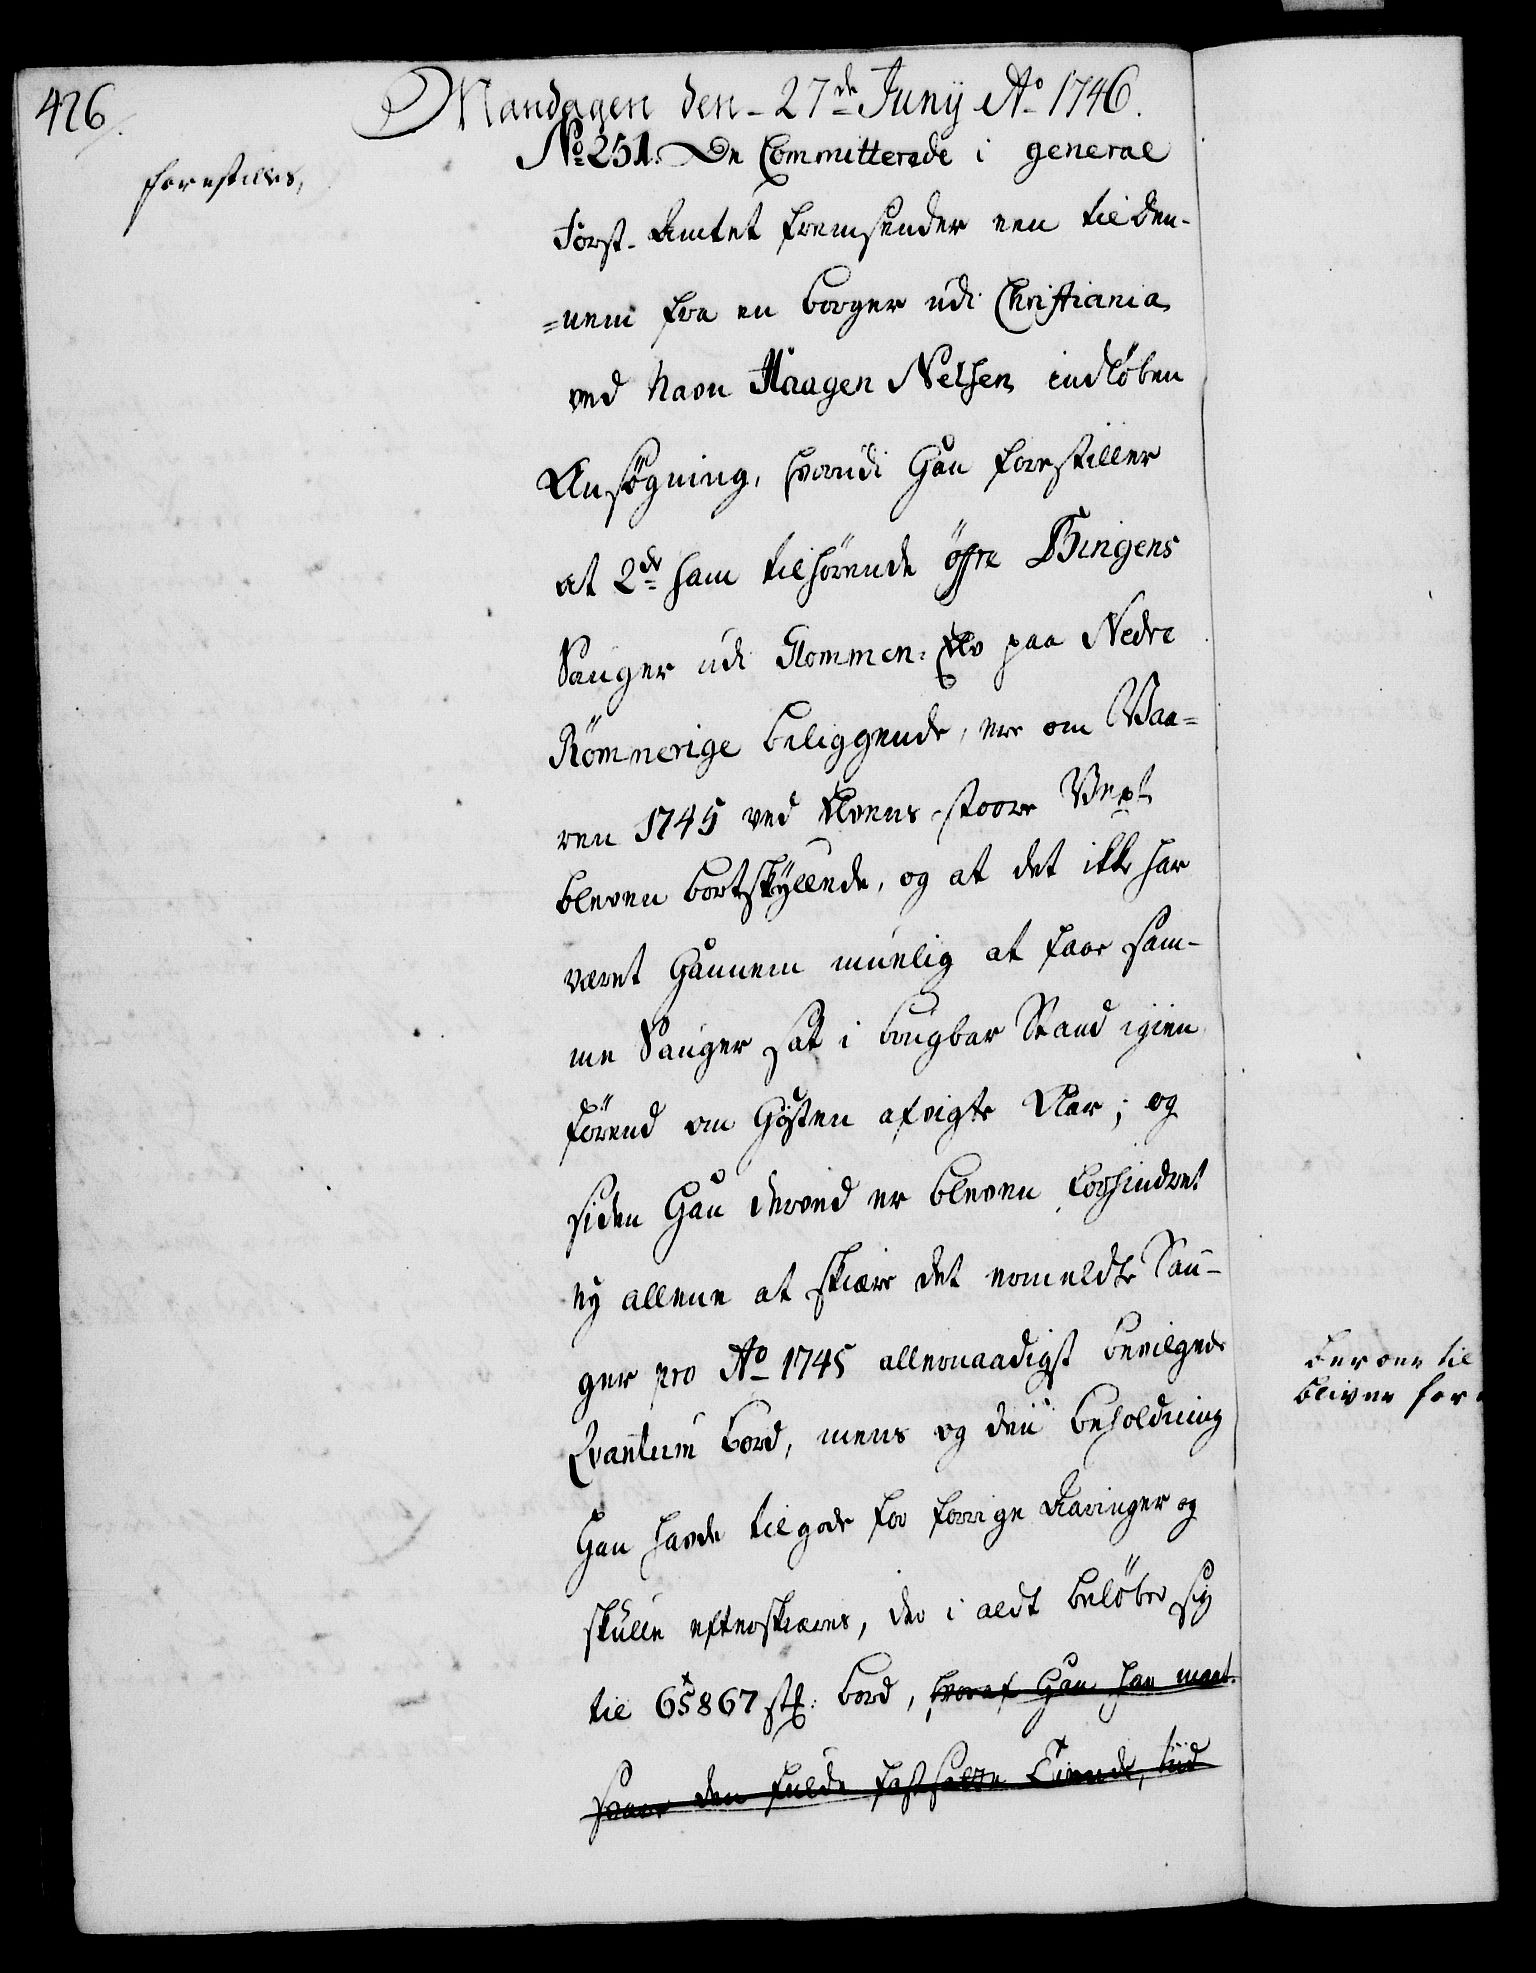 426.
Mandagen den 27de Junij Ao 1746.
forestilles,
No 251. De Committerede i general
Forst-Amtet fremsender een til den-
=nem fra en borger udi Christiania
ved Navn Haagen Nelsen indløben
Ansøgning, hvorudi Han forestiller
at 2de ham tilhørende øfre Bingens
Sauger udi Glommen-Elv paa Nedre
Rømmerige beliggende, ere om Vaa=
ren 1745 ved Elvens stoore Vext
bleven bortskyllede, og at det ikke har
været Hannem muelig at faae sam-
me Sauger sat i brugbar Stand igien
førend om Høsten afvigte Aar; og
siden Han derved er bleven forhindret
ey allene at skiære det ermeldte Sau-
ger pro Ao 1745 allernaadigst bevilgede
Qvantum bord, mens og den beholdning
Han havde tilgode for forrige Aaringer og
skulle efterskiæres, der i aldt beløber sig
til 65867 stk: bord, hvoraf Han har maat-
svare den fulde fastsatte Tiende, tiid
derover til
bliver for